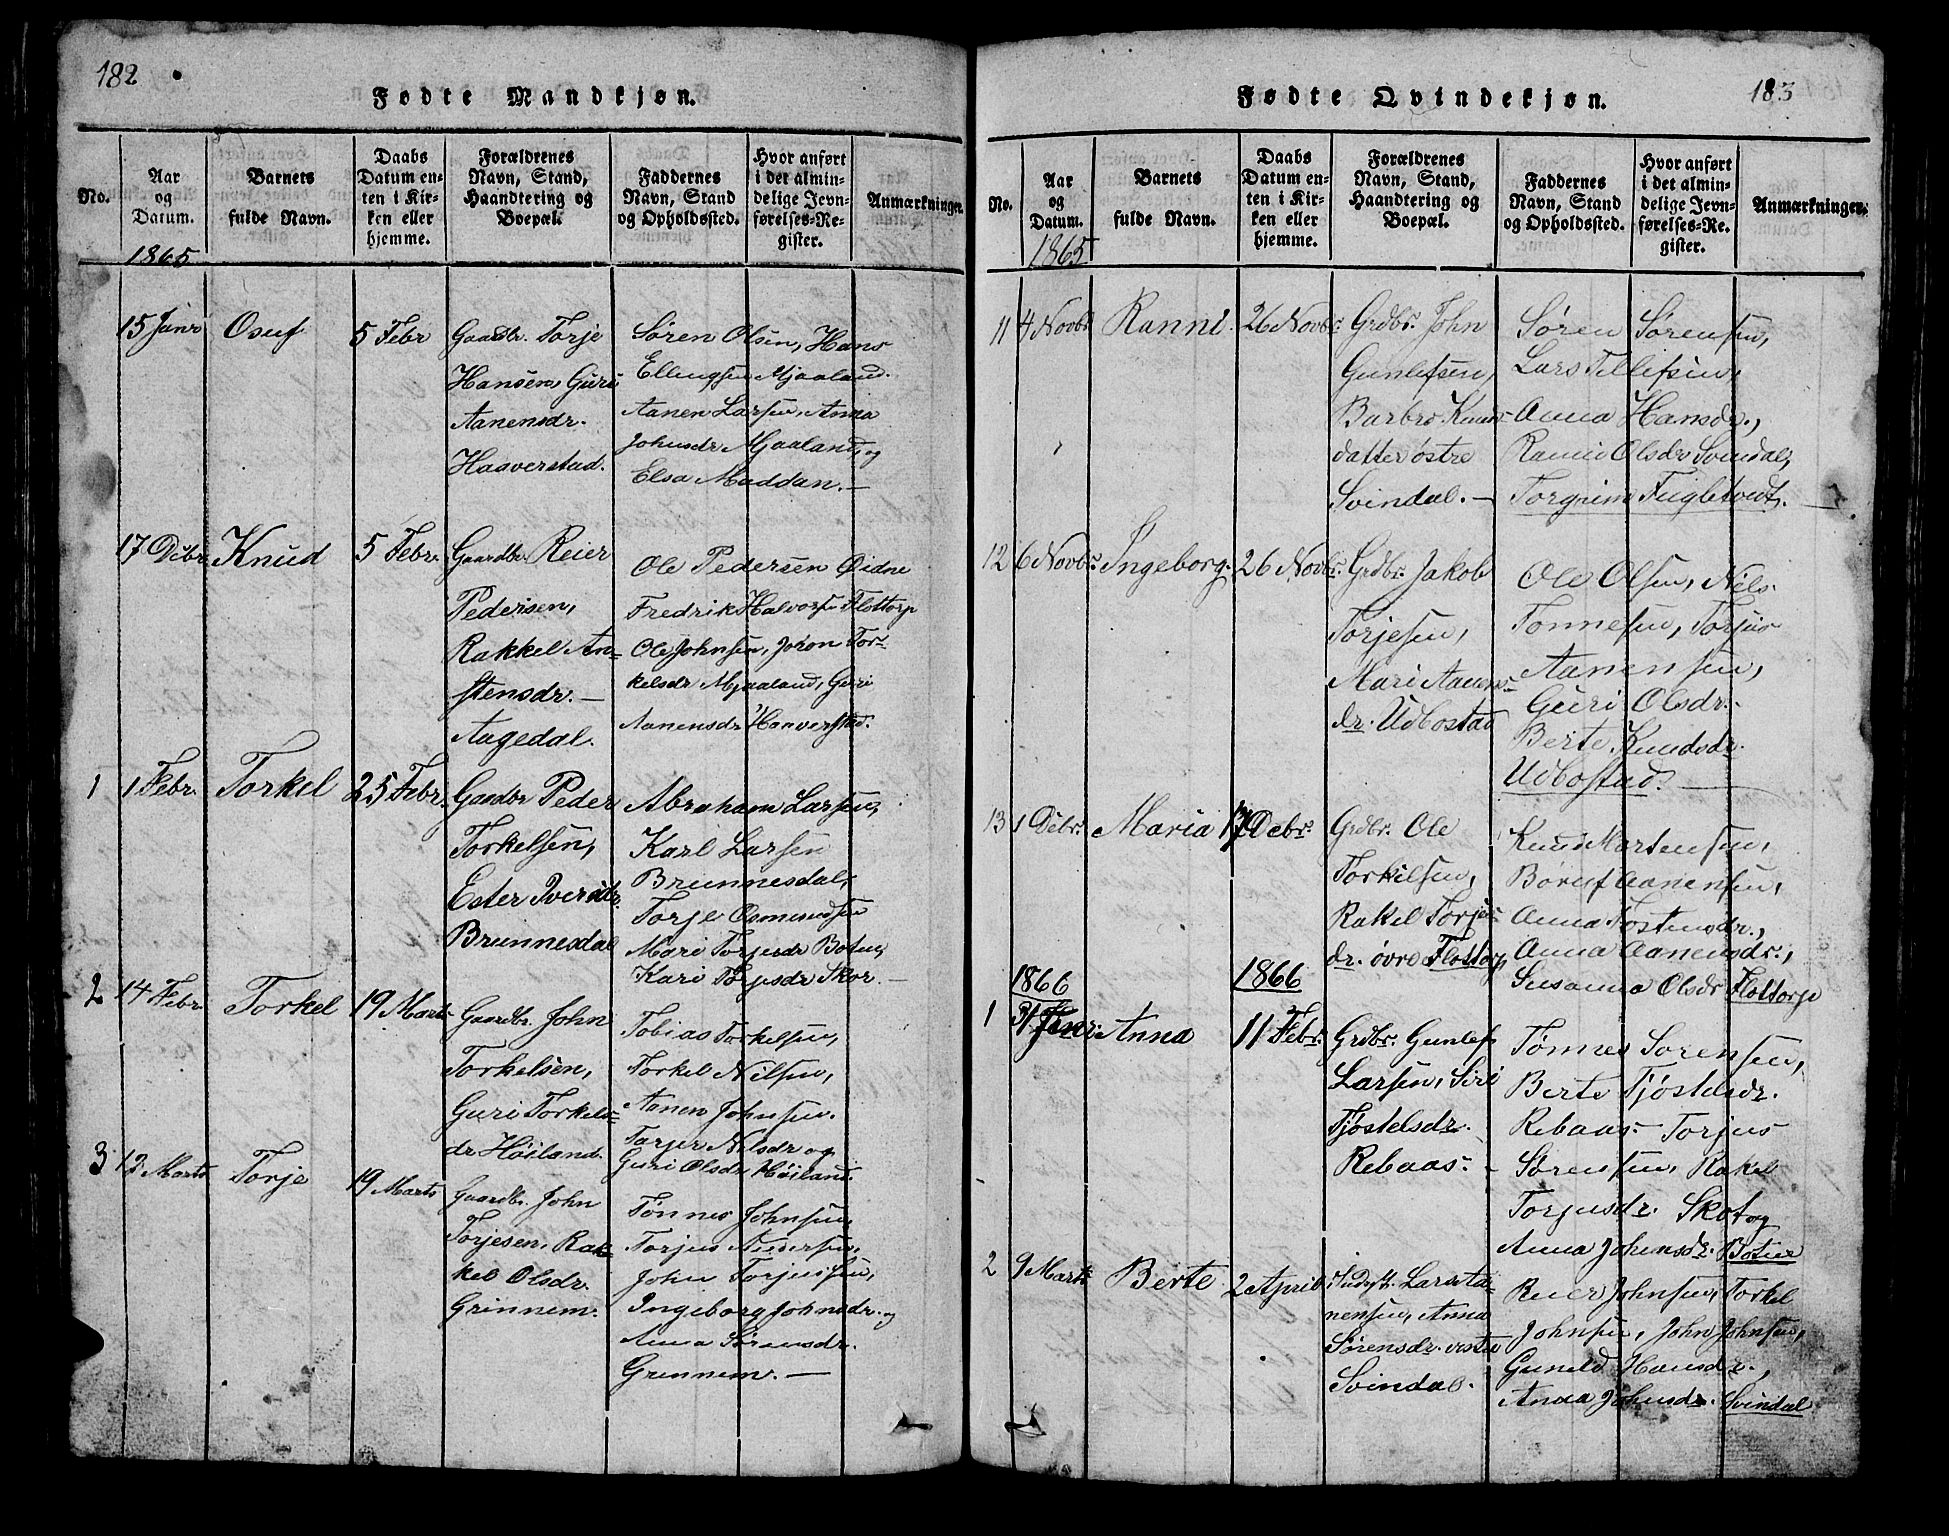 182
Fødte Mandkjøn.
No.
Aar
og
Datum.
1865
Barnets
fulde Navn.
Daabs
Datum en-
ten i Kir-
ken eller
hjemme.
Forældrenes
Navn, Stand,
Haandtering og
Boepæl.
Faddernes
Navn, Stand
og Opholdssted.
Hvor anført
i det almin-
delige Jevn-
førelses-Re-
gister.
Anmærkninger.
15 Janr
Osuf
5 Febr
Gaardbr. Torje
Hansen, Guri
Aanensdr.
Haaverstad.
Søren Olsen, Hans
Ellingsen Mjaaland.
Aanen Larsen, Anna
Johnsdr Mjaaland, og
Elsa Maddan.—
17 Debr
Knud
5 Febr.
Gaardbr. Reier
Pedersen,
Rakkel An-
stensdr.—
Aagedal.
Ole Pedersen Øidne
Fredrik Halvorsen Flottorp
Ole Johnsen, Joron Tor-
kelsdr Mjaaland, Guri
Aanensdr Haaverstad.
1
1 Febr.
Torkel
25 Febr.
Gaardbr Peder
Torkelsen,
Ester Iversdr.
Brunnesdal
Abraham Larsen,
Karl Larsen
Brunnesdal,
Torje Osmundsen
Mari Torjusdr Boten,
Kari Torjusdr Skor.—
2
14 Febr.
Torkel
19 Marts
Gaardbr. John
Torkelsen,
Guri Torkels-
dr Høiland.
Tobias Torkelsen,
Torkel Nilsen,
Aanen Johnsen.
Tarjer Nilsdr og
Guri Olsdr Høiland.
3
12 Marts
Torje
19 Marts
Gaardbr. John
Torjesen, Rak-
kel Olsdr.
Grinnem.
Tønnes Johnsen,
Torjus Andersen,
John Torjusen,
Ingeborg Johnsdr. og
Anna Sørensdr.
Grennem.—
Fødte Qvindekjøn.
183
No.
Aar
og
Datum.
1865
Barnets
fulde Navn.
Daabs
Datum en-
ten i Kir-
ken eller
hjemme.
Forældrenes
Navn, Stand,
Haandtering og
Boepæl.
Faddernes
Navn, Stand
og Opholdssted.
Hvor anført
i det almin-
delige Jevn-
førelses-Re-
gister.
Anmærkninger.
11
4 Novbr
Ranni.
26 Novbr.
Grdbr. John
Gunlefsen,
Barbro Knuds-
datter østre
Svindal.—
Søren Sørensen,
Lars Tellefsen,
Anna Hansdr.,
Ranni Olsdr Svindal,
Torgrim Fugletvedt.
12
6 Novbr.
Ingeborg.
26 Novbr.
Grdbr. Jakob
Torjesen,
Mari Aanens-
dr. Udbostad
Ole Olsen, Nils
Tønnesen, Torjus
Aanensen,
Guri Olsdr.
Berte Knudsdr.
Udbostad.—
13
1 Debr.
Maria
17 Debr.
Grdbr. Ole
Torkilsen,
Rakel Torjus-
dr. øvre Flottorp
Knud Martensen,
Børuf Aanensen,
Anna Tostensdr.,
Anna Aanensdr.,
Susanna Olsdr Flottorp
1866
1866
1
31 Janr.
Anna
11 Febr.
Grdbr. Gunlef
Larsen, Siri
Tjøstelsdr.
Rebaas.
Tønnes Sørensen,
Berte Tjøstelsdr.
Rebaas. Torjus
Sørensen, Rakel
Torjusdr. Skot og
Anna Johensdr. Boten
2
9 Marts
Berte
2 April
Indst. Lars Aa-
nensen, Anna
Sørensdr. vestre
Svindal.
Reier Johnsen, Torkel
Johnsen, John Johnsen,
Guneld Hansdr.,
Anna Johnsdr. Svindal